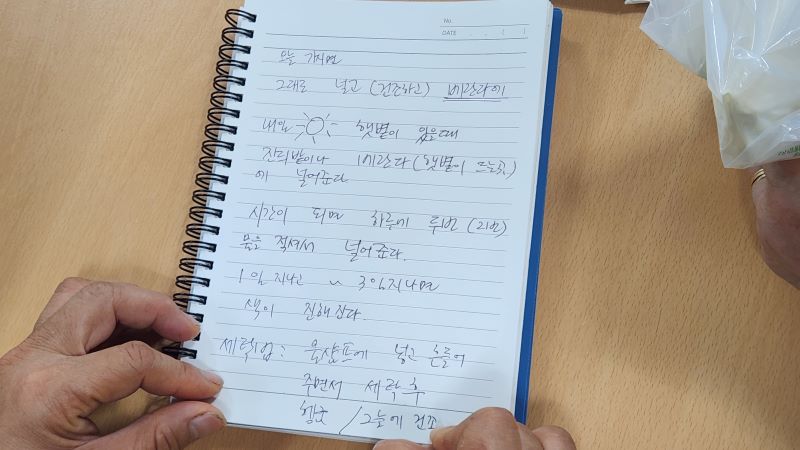 No.
DATE . . .
오늘 가시면
그대로 널고 (건조하고) 베란다에
내일 햇볕이 있을때
잔디밭이나 베란다 (햇볕이 뜨는곳)
에 널어준다
시간이 되면 하루에 두번 (2번)
물을 적셔서 널어준다.
1일 지나고 ~ 3일지나면
색이 진해진다.
세탁법: 울샴프에 넣고 흔들어
주면서 세탁 후
헹굼 / 그늘에 건조